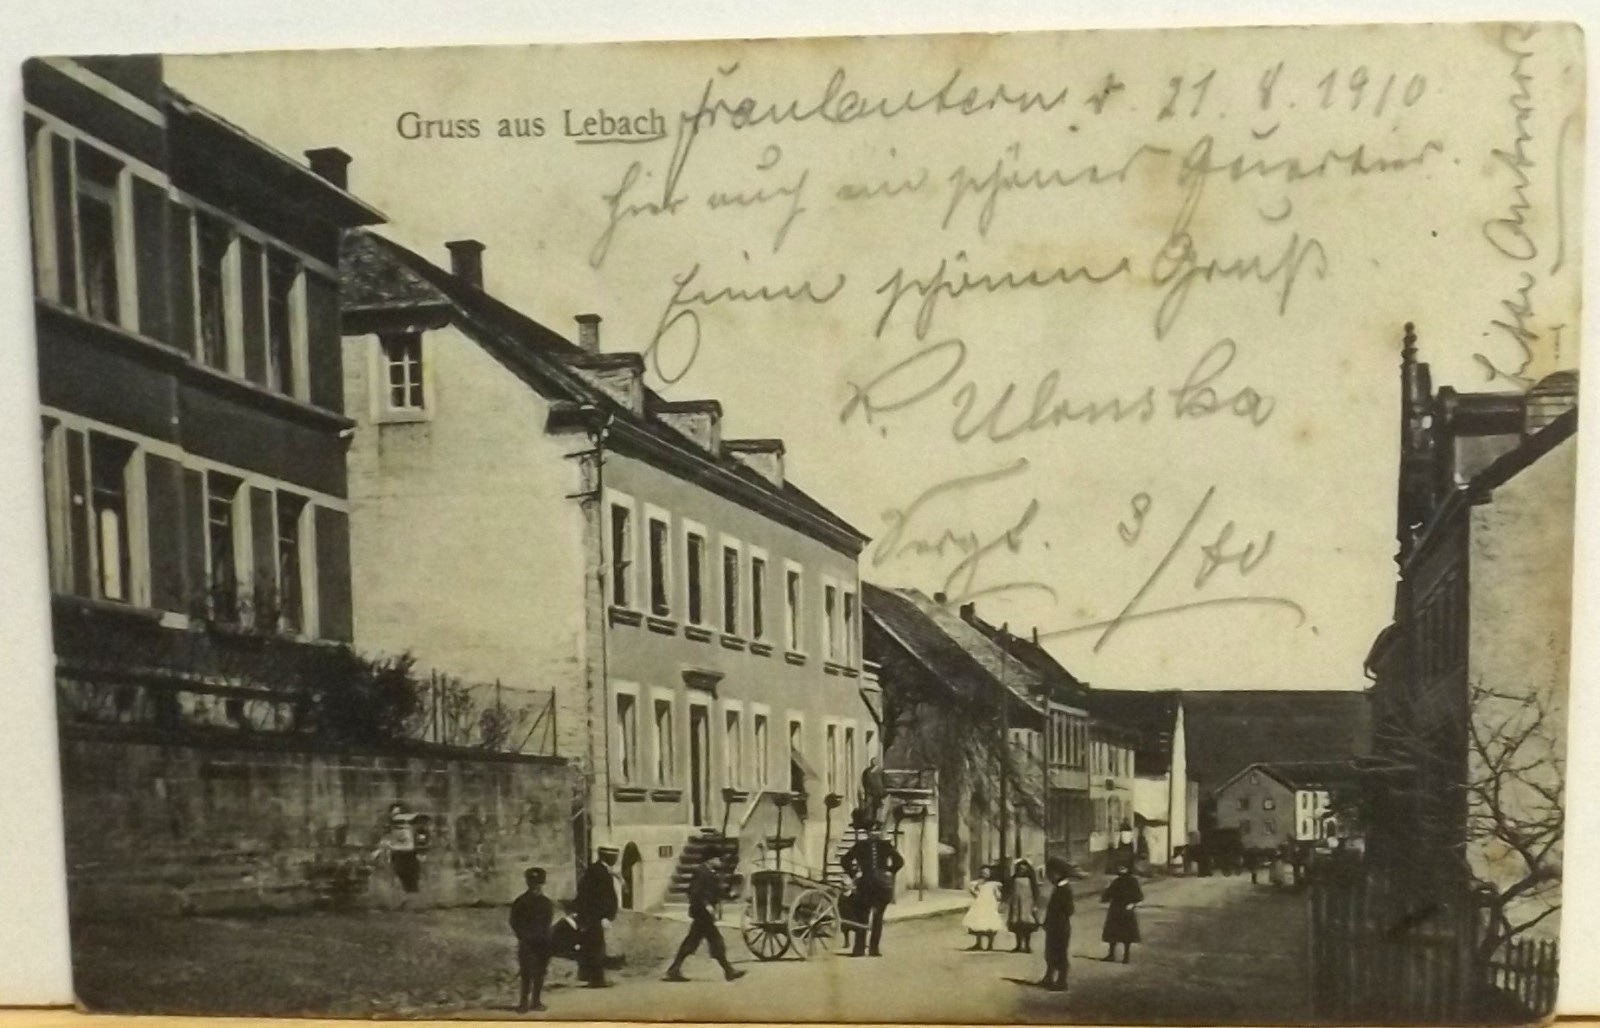 Gruss aus Lebach
Fraulautern d. 21. 8. 1910.
Hier auch ein schönes Quartier.
Einen schönen Gruß
Ulenska
Sergt. 8/70
Bitte Antwort